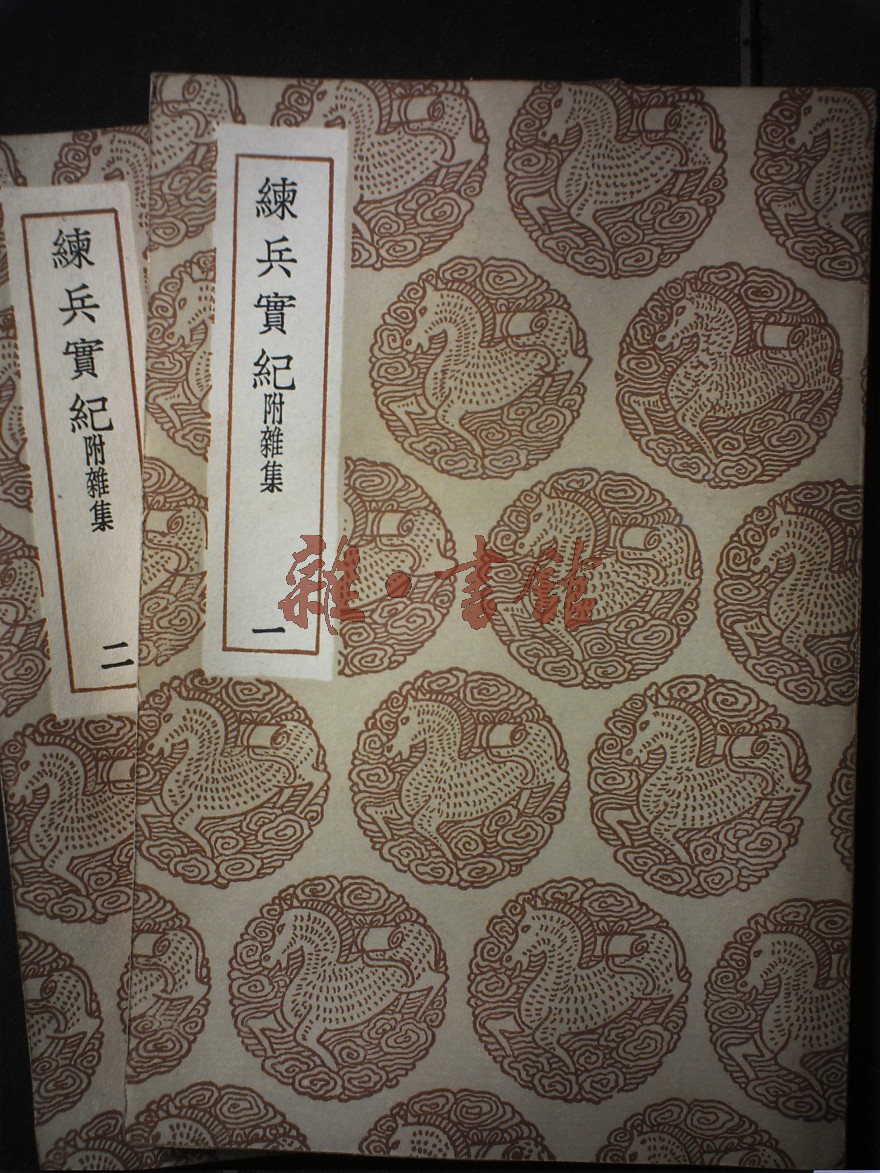 練兵實紀附雜集
一
練兵實紀附雜集
二
雜·書館